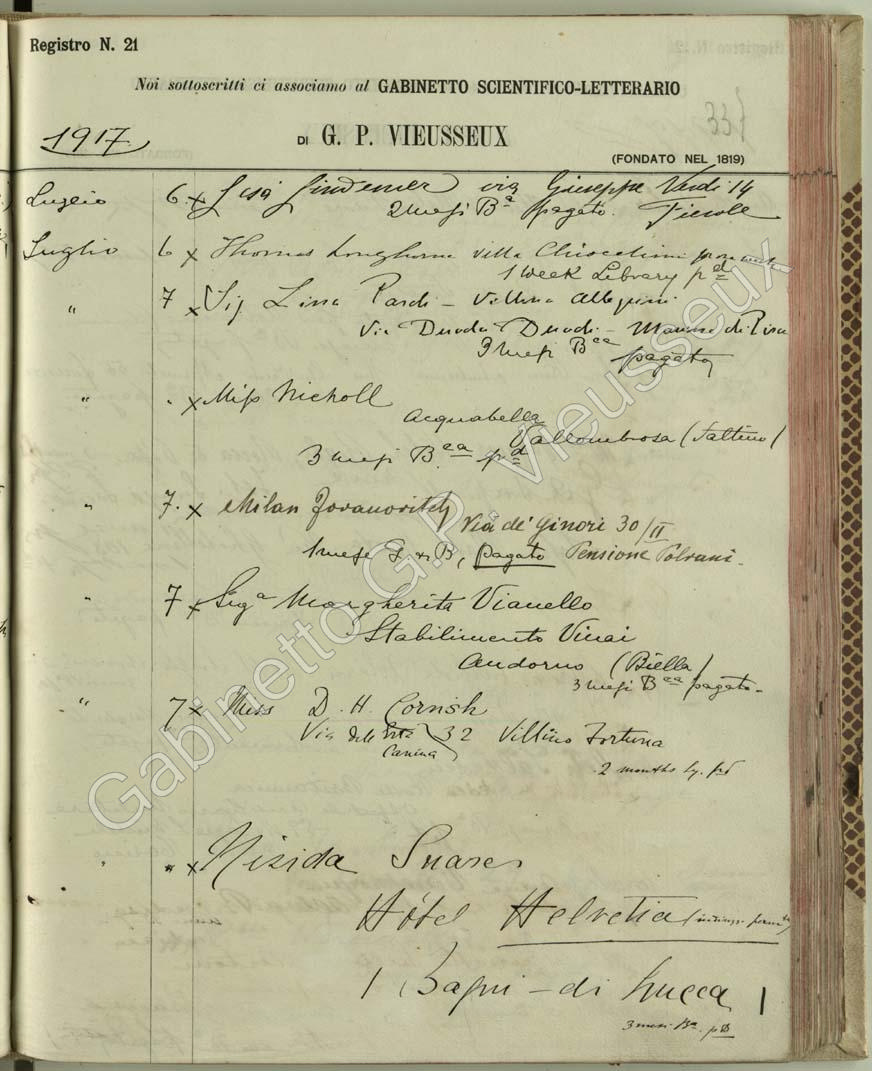 Registro N. 21
Noi sottoscritti ci associamo al GABINETTO SCIENTIFICO-LETTERARIO
337
1917
DI G. P. VIEUSSEUX
(FONDATO NEL 1819)
Luglio 6 x Lisa Lindemer via Giuseppe Verdi 14
2 mesi Bª pagato. Fiesole
Luglio 6 x Thomas villa
1 week Library pd
" 7 x Sig Pardi - Villino
Via Duodi - Marina di Pisa
3 mesi Bca pagato
" " x Miss Nicholl
Acquabella
Vallombrosa (Saltino)
3 mesi B.ca pd
" 7. x Milan Jovanovitch Via de' Ginori 30/II
1 mese G. & B, pagato Pensione Polvani.
" 7 x Sigª Margherita Vianello
Stabilimento Vinai
Andorno (Biella)
3 mesi Bca pagato
" 7 x Miss D. H. Cornish
Via dell' Erta Canina 32 Villino Fortuna
2 months Ly. pd
" " x Nisida Suares
Hôtel Helvetia
1 Bagni - di Lucca 1
3 mesi Bª pd
Gabinetto G.P. Vieusseux